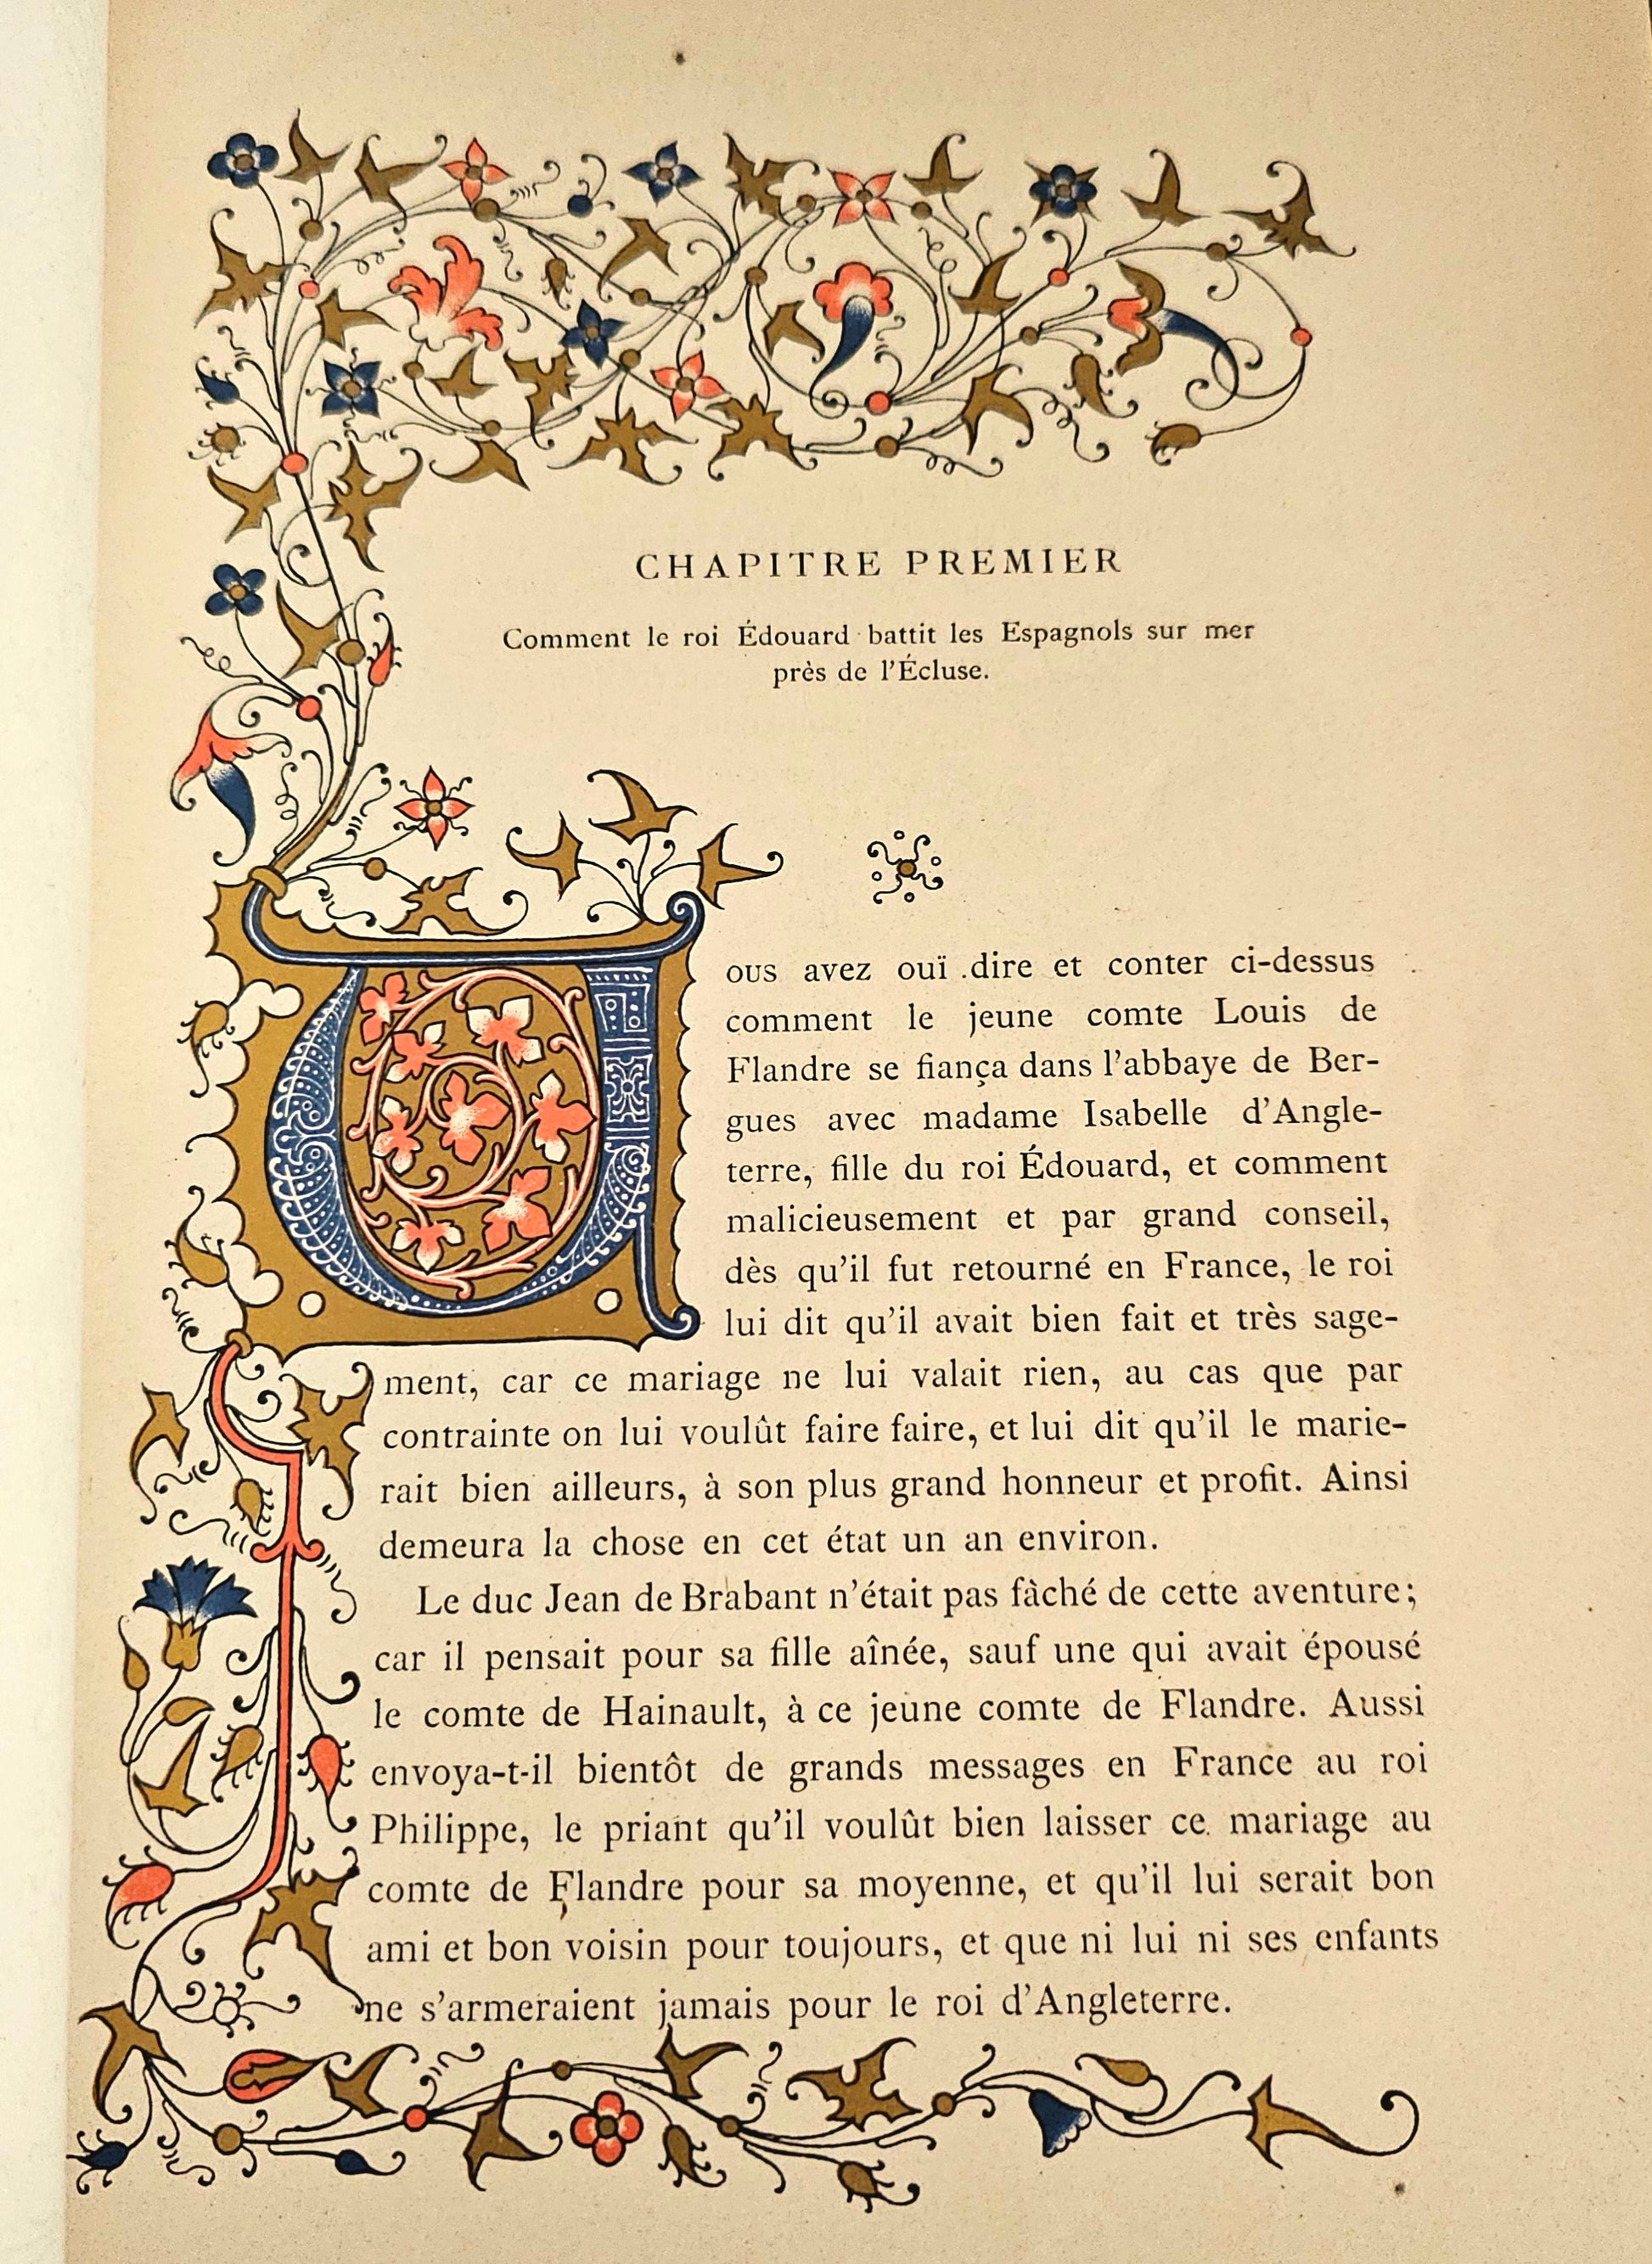 CHAPITRE PREMIER
Comment le roi Édouard battit les Espagnols sur mer
près de l'Écluse.
Vous avez ouï dire et conter ci-dessus
comment le jeune comte Louis de
Flandre se fiança dans l'abbaye de Ber-
gues avec madame Isabelle d'Angle-
terre, fille du roi Édouard, et comment
malicieusement et par grand conseil,
dès qu'il fut retourné en France, le roi
lui dit qu'il avait bien fait et très sage-
ment, car ce mariage ne lui valait rien, au cas que par
contrainte on lui voulût faire faire, et lui dit qu'il le marie-
rait bien ailleurs, à son plus grand honneur et profit. Ainsi
demeura la chose en cet état un an environ.
Le duc Jean de Brabant n'était pas fàché de cette aventure;
car il pensait pour sa fille aînée, sauf une qui avait épousé
le comte de Hainault, à ce jeune comte de Flandre. Aussi
envoya-t-il bientôt de grands messages en France au roi
Philippe, le priant qu'il voulût bien laisser ce mariage au
comte de Flandre pour sa moyenne, et qu'il lui serait bon
ami et bon voisin pour toujours, et que ni lui ni ses enfants
ne s'armeraient jamais pour le roi d'Angleterre.